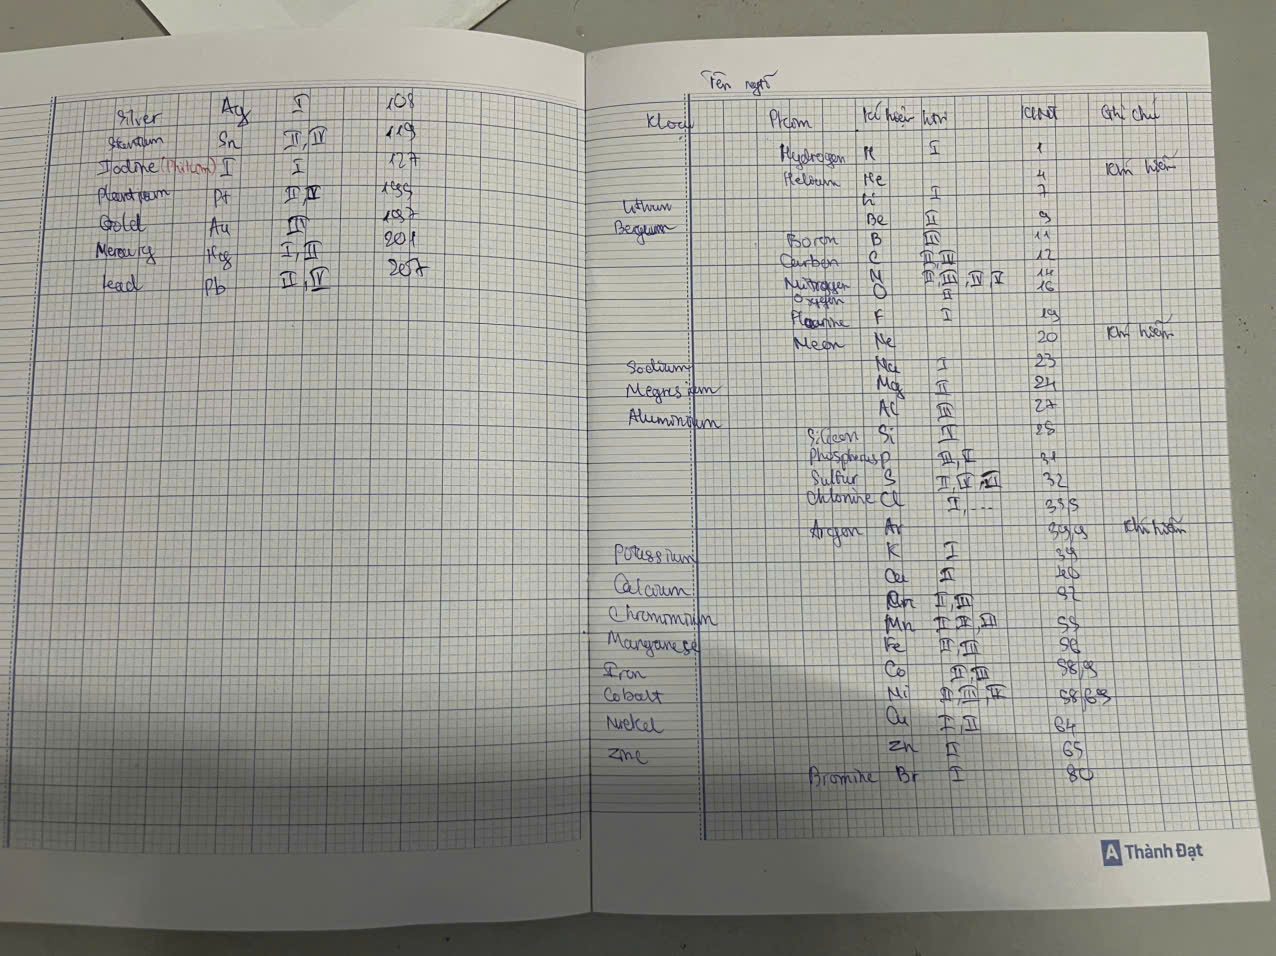 Silver Ag I 108
Sn II, IV 119
Iodine (Phi kim) I I 127
Pt II, IV 199
Gold Au III 197
Mercury Hg I, II 201
Lead Pb II, IV 207
Tên ngtố
Kloại Pkim Kí hiệu htrị KLNT Ghi chú
Hydrogen H I 1
Helium He 4 Khí hiếm
Lithium Li I 7
Be II 9
Boron B III 11
Carbon C II, IV 12
Nitrogen N II, III, IV, V 14
Oxygen O II 16
F I 19
Neon Ne 20 Khí hiếm
Sodium Na I 23
Megnesium Mg II 24
Aluminium Al III 27
Silicon Si 28
Phosphorus P III, V 31
Sulfur S II, IV, VI 32
Chlorine Cl I, ... 35,5
Argon Ar 39,9 Khí hiếm
Potassium K I 39
Calcium Ca II 40
II, III 52
Manganese Mn 55
Iron Fe II III 56
Cobalt Co II, III 58,9
Nickel Ni II, III, IV 58,69
Cu I, II 64
Zinc Zn II 65
Bromine Br I 80
A Thành Đạt